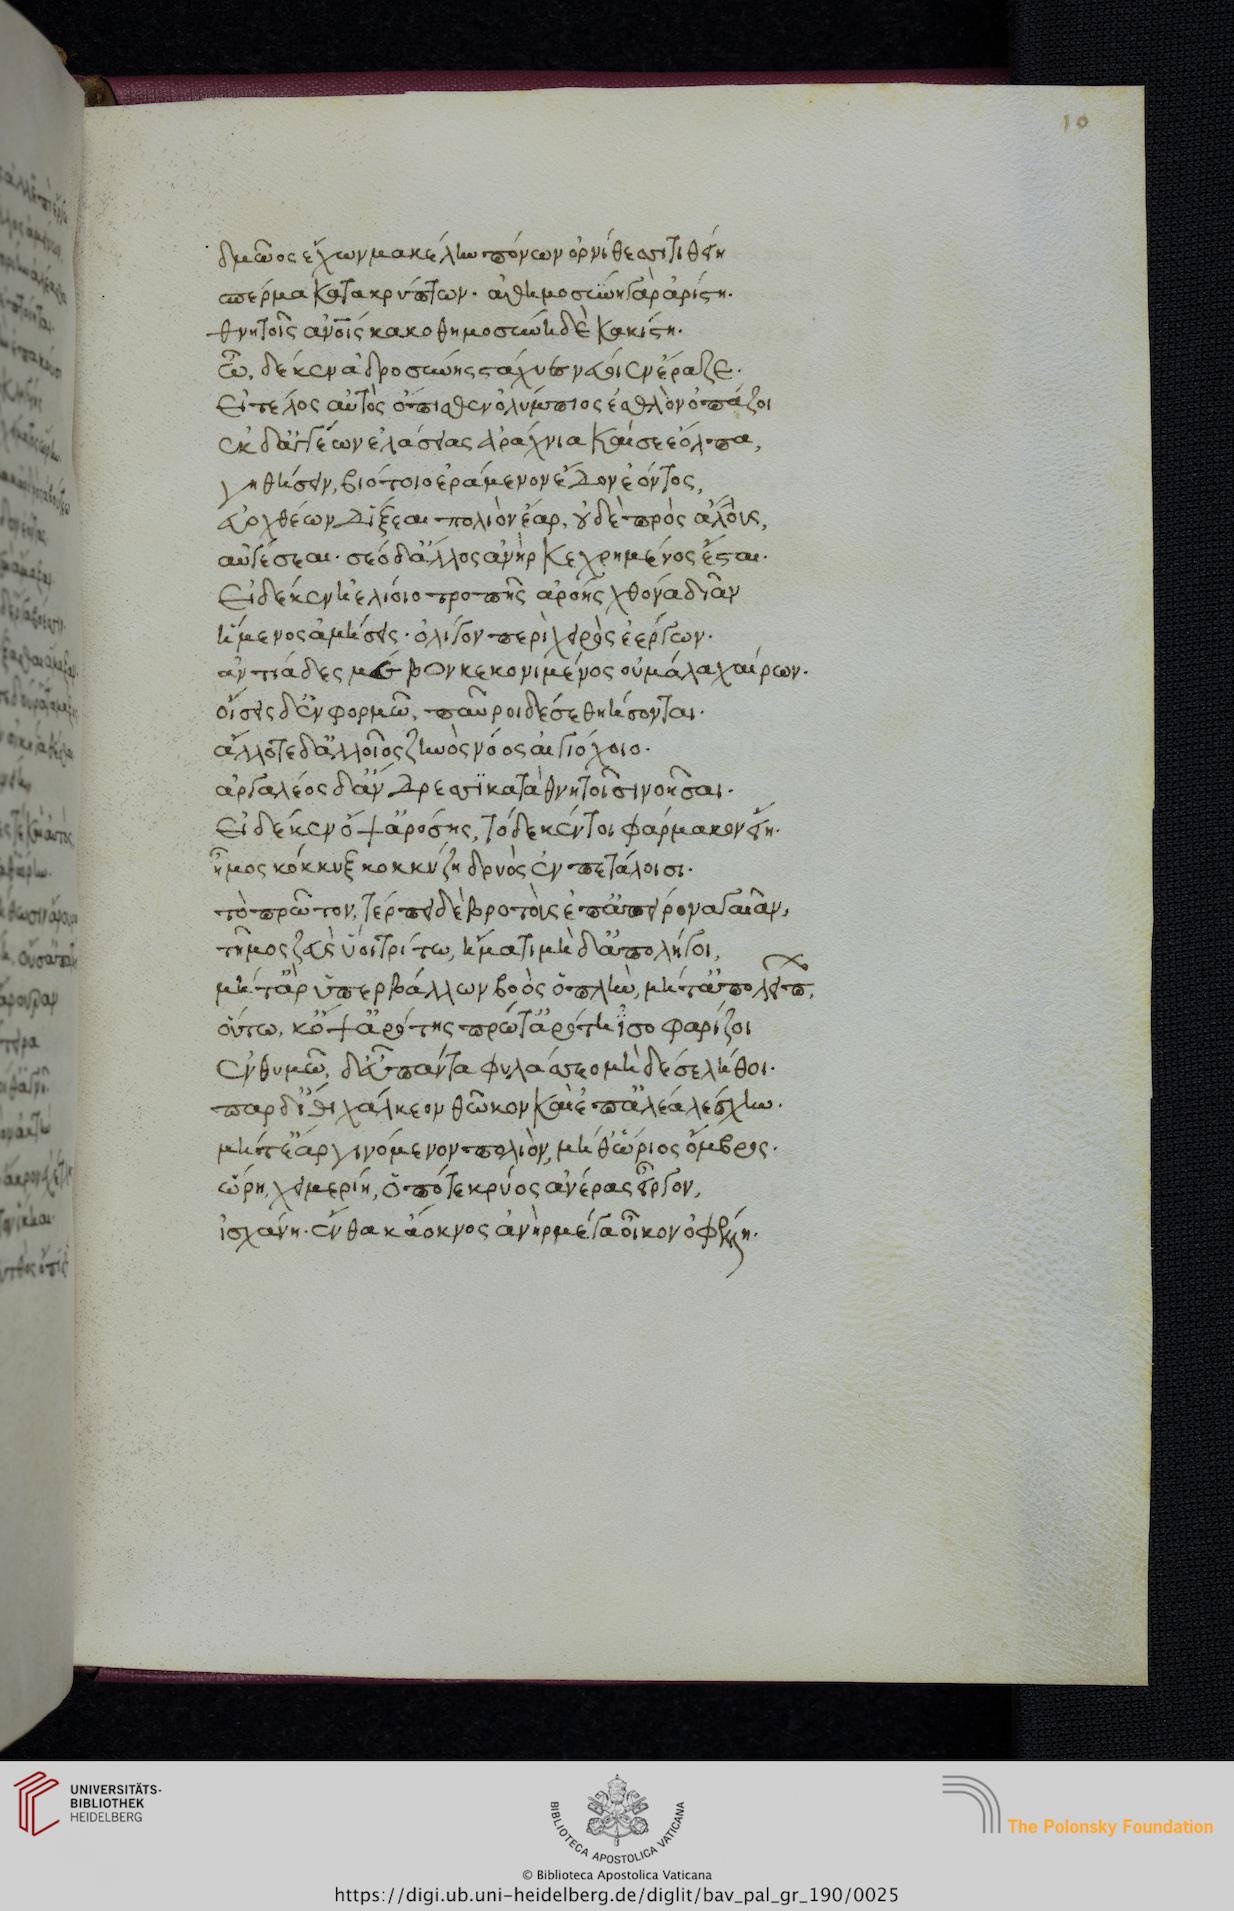 10
δμῶος ἔχων μακέλην πόνον ὀρνίθεσσι τιθείη
σπέρμα κατακρύπτων. εὐθημοσύνη γὰρ ἀρίστη.
θνητοῖς ἀνοις κακοθημοσύνη δὲ κακίστη.
ὧ, δέ κεν ἁδροσύνης στάχυες νεύοιεν ἔραζε.
Εἰ τέλος αὐτὸς ὄπισθεν ὀλύμπιος ἐσθλὸν ὀπάζοι
ἐκ δ' ἀγγέων ἐλάσειας ἀράχνια καί σε ἔολπα,
γηθήσειν, βιότοιο ἐράμενον ἔνδον ἐόντος,
εὐοχθέων δ' ἵξεαι πολιὸν ἔαρ, οὐδὲ πρὸς ἄλλους,
αὐγάσεαι. σέο δ' ἄλλος ἀνὴρ κεχρημένος ἔσται.
Εἰ δέ κεν ἠελίοιο τροπῆς ἀρόης χθόνα δῖαν
ἥμενος ἀμήσεις. ὀλίγον περὶ χειρὸς ἐέργων.
ἀντία δεσμεύων κεκονιμένος οὐ μάλα χαίρων.
οἴσεις δ' ἐν φορμῶ, παῦροι δέ σε θηήσονται.
ἄλλοτε δ' ἀλλοῖος ζηνὸς νόος αἰγιόχοιο.
ἀργαλέος δ' ἄνδρεσσι καταθνητοῖσι νοῆσαι.
Εἰ δέ κεν ὄψ' ἀρόσης, τόδε κέν τοι φάρμακον εἴη.
ἦμος κόκκυξ κοκκύζη δρυὸς ἐν πετάλοισι.
τὸ πρῶτον, τέρπει δὲ βροτοὺς ἐπ' ἀπείρονα γαῖαν,
τῆμος ζεὺς ὕοι τρίτω, ἤματι μὴ δ' ἀπολήγοι,
μήτ' ἂρ ὑπερβάλλων βοὸς ὁπλὴν, μήτ' ἀπολείπων,
οὕτω, κ' ὀψαρότης πρωταρότη ἰσοφαρίζοι
ἐν θυμῶ, δ' εὖ πάντα φυλάσσεο μὴ δέ σε λήθοι.
παρ δ' ἴθι χάλκεον θῶκον καὶ ἐπ' ἀλέα λέσχην.
μήτ' ἔαρ γινόμενον πολιὸν, μήθ' ὥριος ὄμβρος.
ὥρη, χειμερίη, ὁπότε κρύος ἀνέρας εἶργον,
ἰσχάνη. ἔνθα κ' ἄοκνος ἀνὴρ μέγα οἶκον ὀφέλλη.
UNIVERSITÄTS-
BIBLIOTHEK
HEIDELBERG
BIBLIOTECA APOSTOLICA VATICANA
© Biblioteca Apostolica Vaticana
The Polonsky Foundation
https://digi.ub.uni-heidelberg.de/diglit/bav_pal_gr_190/0025